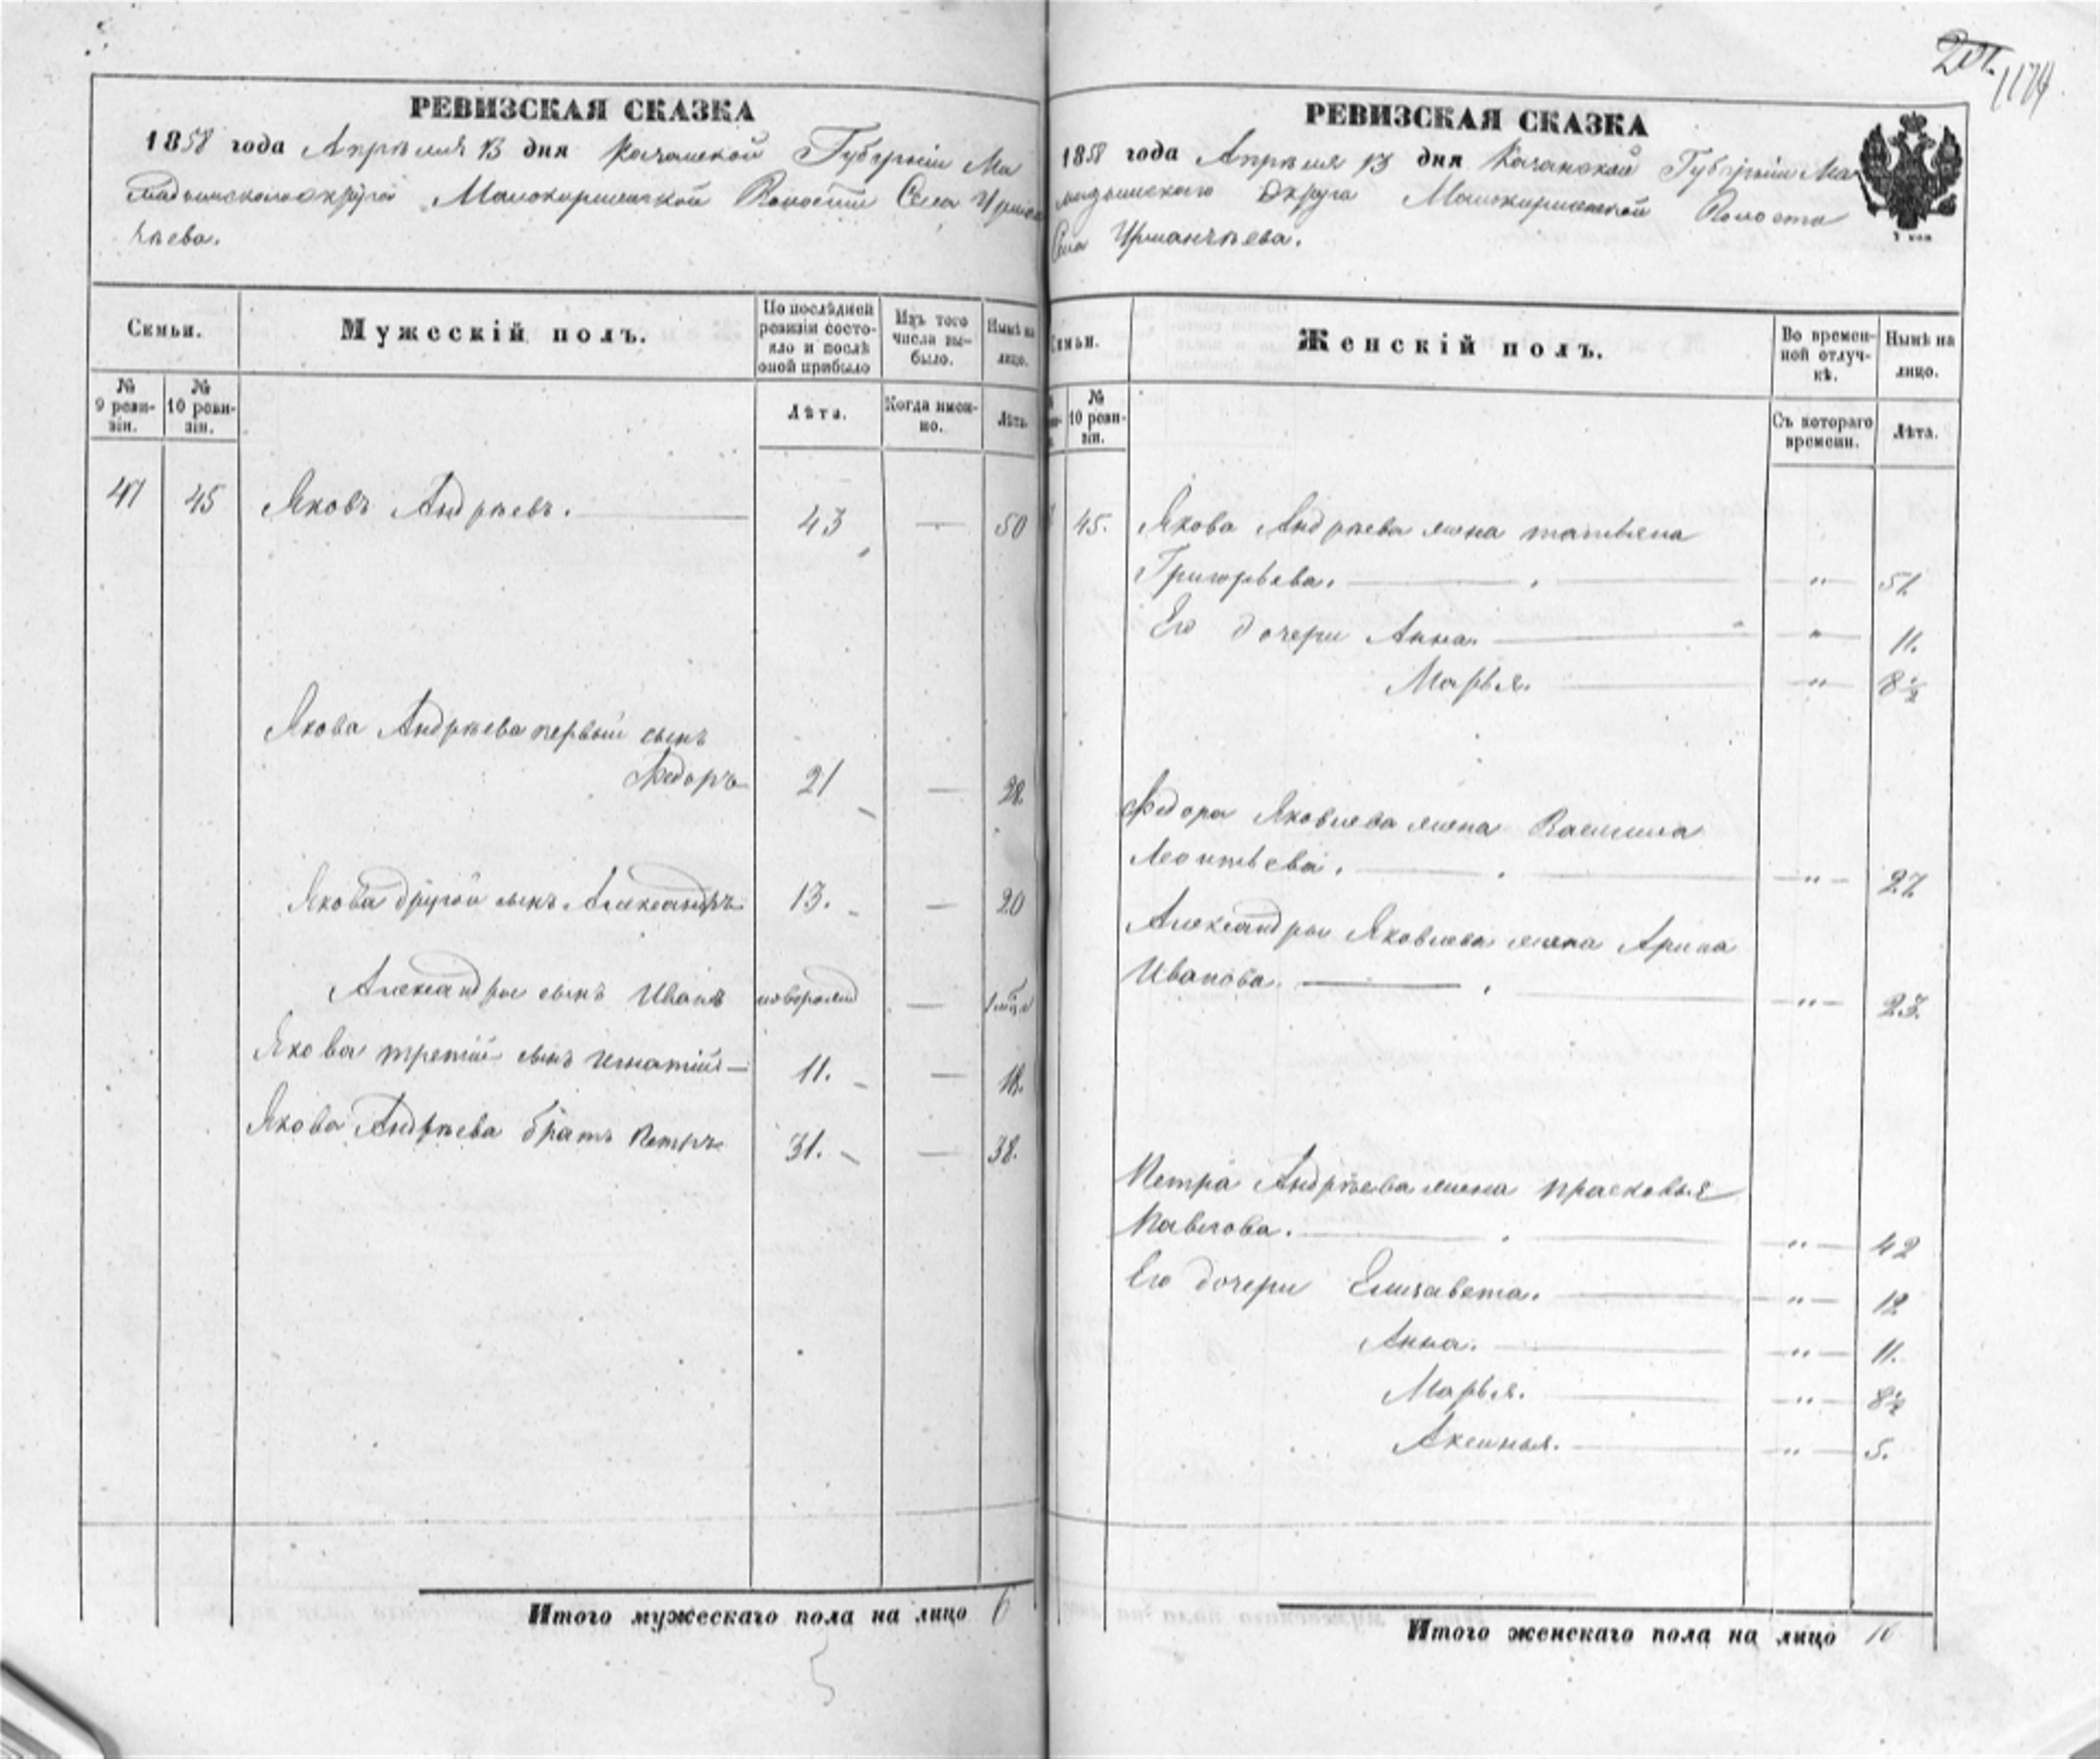 201. 1174
РЕВИЗСКАЯ СКАЗКА
1858 года Апрѣля 13 дня Казанской Губерніи Ма
мадышскаго округа Малокирменской Волости Села Урман
чѣева.
Семьи.
Мужескій полъ.
По послѣдней ревизіи состо-
яло и послѣ оной прибыло
Изъ того числа вы-
было.
Нынѣ на лицо.
№ 9 реви-
зіи.
№ 10 реви-
зіи.
Лѣта.
Когда имен-
но.
Лѣта.
47 45 Яковъ Андрѣевъ. 43 — 50
Якова Андрѣева первый сынъ
Федоръ 21 — 28
Якова другой сынъ Александръ 13. — 20
Александры сынъ Иванъ новорожд — 1 мѣца
Якова третій сынъ Игнатій — 11. — 18.
Якова Андрѣева братъ Петръ 31. — 38.
Итого мужескаго пола на лицо 6
5
РЕВИЗСКАЯ СКАЗКА
1858 года Апрѣля 13 дня Казанской Губерніи Ма
мадышскаго Округа Малокирменской Волости
Села Урманчѣева.
1 коп
Семьи.
Женскій полъ.
Во времен-
ной отлуч-
кѣ.
Нынѣ на лицо.
№ 10 реви-
зіи.
Съ котораго времени.
Лѣта.
45. Якова Андрѣева жена татьяна
Григорьева. — " — 51
Его дочери Анна. — " — 11.
Марья. — " — 8½
Федора Яковлева жена Васишиа
Леонтьева. — " — 27
Александры Яковлева жена Арина
Иванова. — " — 23.
Петра Андрѣева жена прасковья
Павлова. — " — 42
Его дочери Елизавета. — " — 12
Анна. — " — 11.
Марья. — " — 8½
Аксинья. — " — 5.
Итого женскаго пола на лицо 10